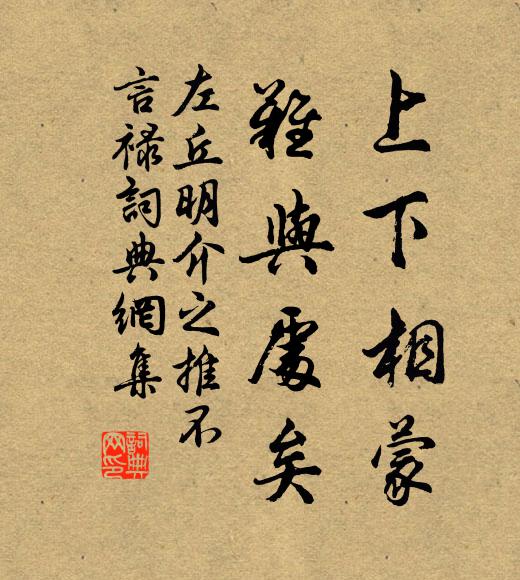 上下相蒙
難與處矣
左丘明介之推不
言祿詞典網集
詞典網印